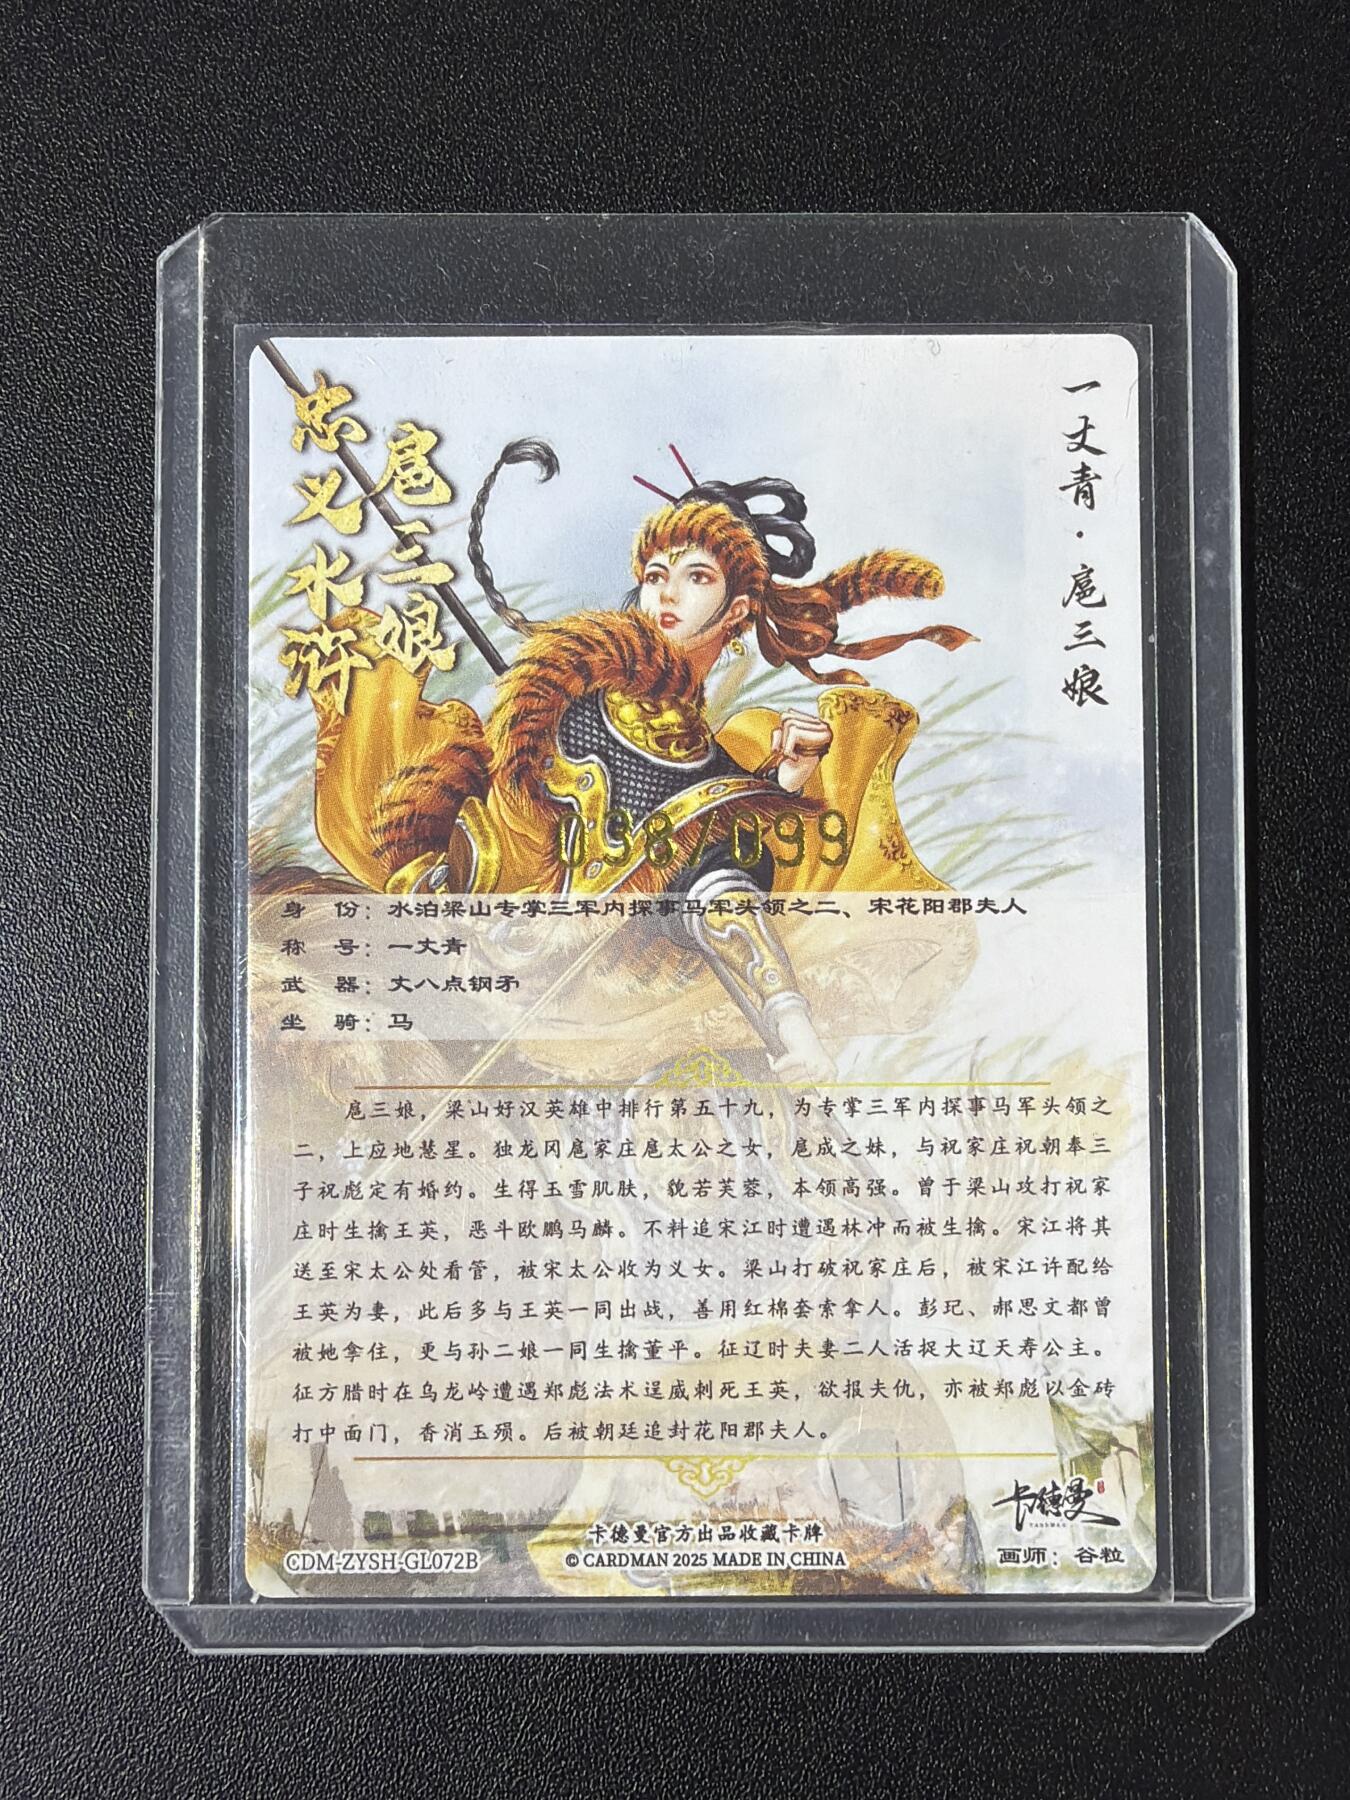 忠义水浒
扈三娘
一丈青·扈三娘
038/099
身 份：水泊梁山专掌三军内探事马军头领之二、宋花阳郡夫人
称 号：一丈青
武 器：丈八点钢矛
坐 骑：马
扈三娘，梁山好汉英雄中排行第五十九，为专掌三军内探事马军头领之
二，上应地慧星。独龙冈扈家庄扈太公之女，扈成之妹，与祝家庄祝朝奉三
子祝彪定有婚约。生得玉雪肌肤，貌若芙蓉，本领高强。曾于梁山攻打祝家
庄时生擒王英，恶斗欧鹏马麟。不料追宋江时遭遇林冲而被生擒。宋江将其
送至宋太公处看管，被宋太公收为义女。梁山打破祝家庄后，被宋江许配给
王英为妻，此后多与王英一同出战，善用红棉套索拿人。彭玘、郝思文都曾
被她拿住，更与孙二娘一同生擒董平。征辽时夫妻二人活捉大辽天寿公主。
征方腊时在乌龙岭遭遇郑彪法术逞威刺死王英，欲报夫仇，亦被郑彪以金砖
打中面门，香消玉殒。后被朝廷追封花阳郡夫人。
卡德曼
CARDMAN
卡德曼官方出品收藏卡牌
CDM-ZYSH-GL072B
© CARDMAN 2025 MADE IN CHINA
画师：谷粒